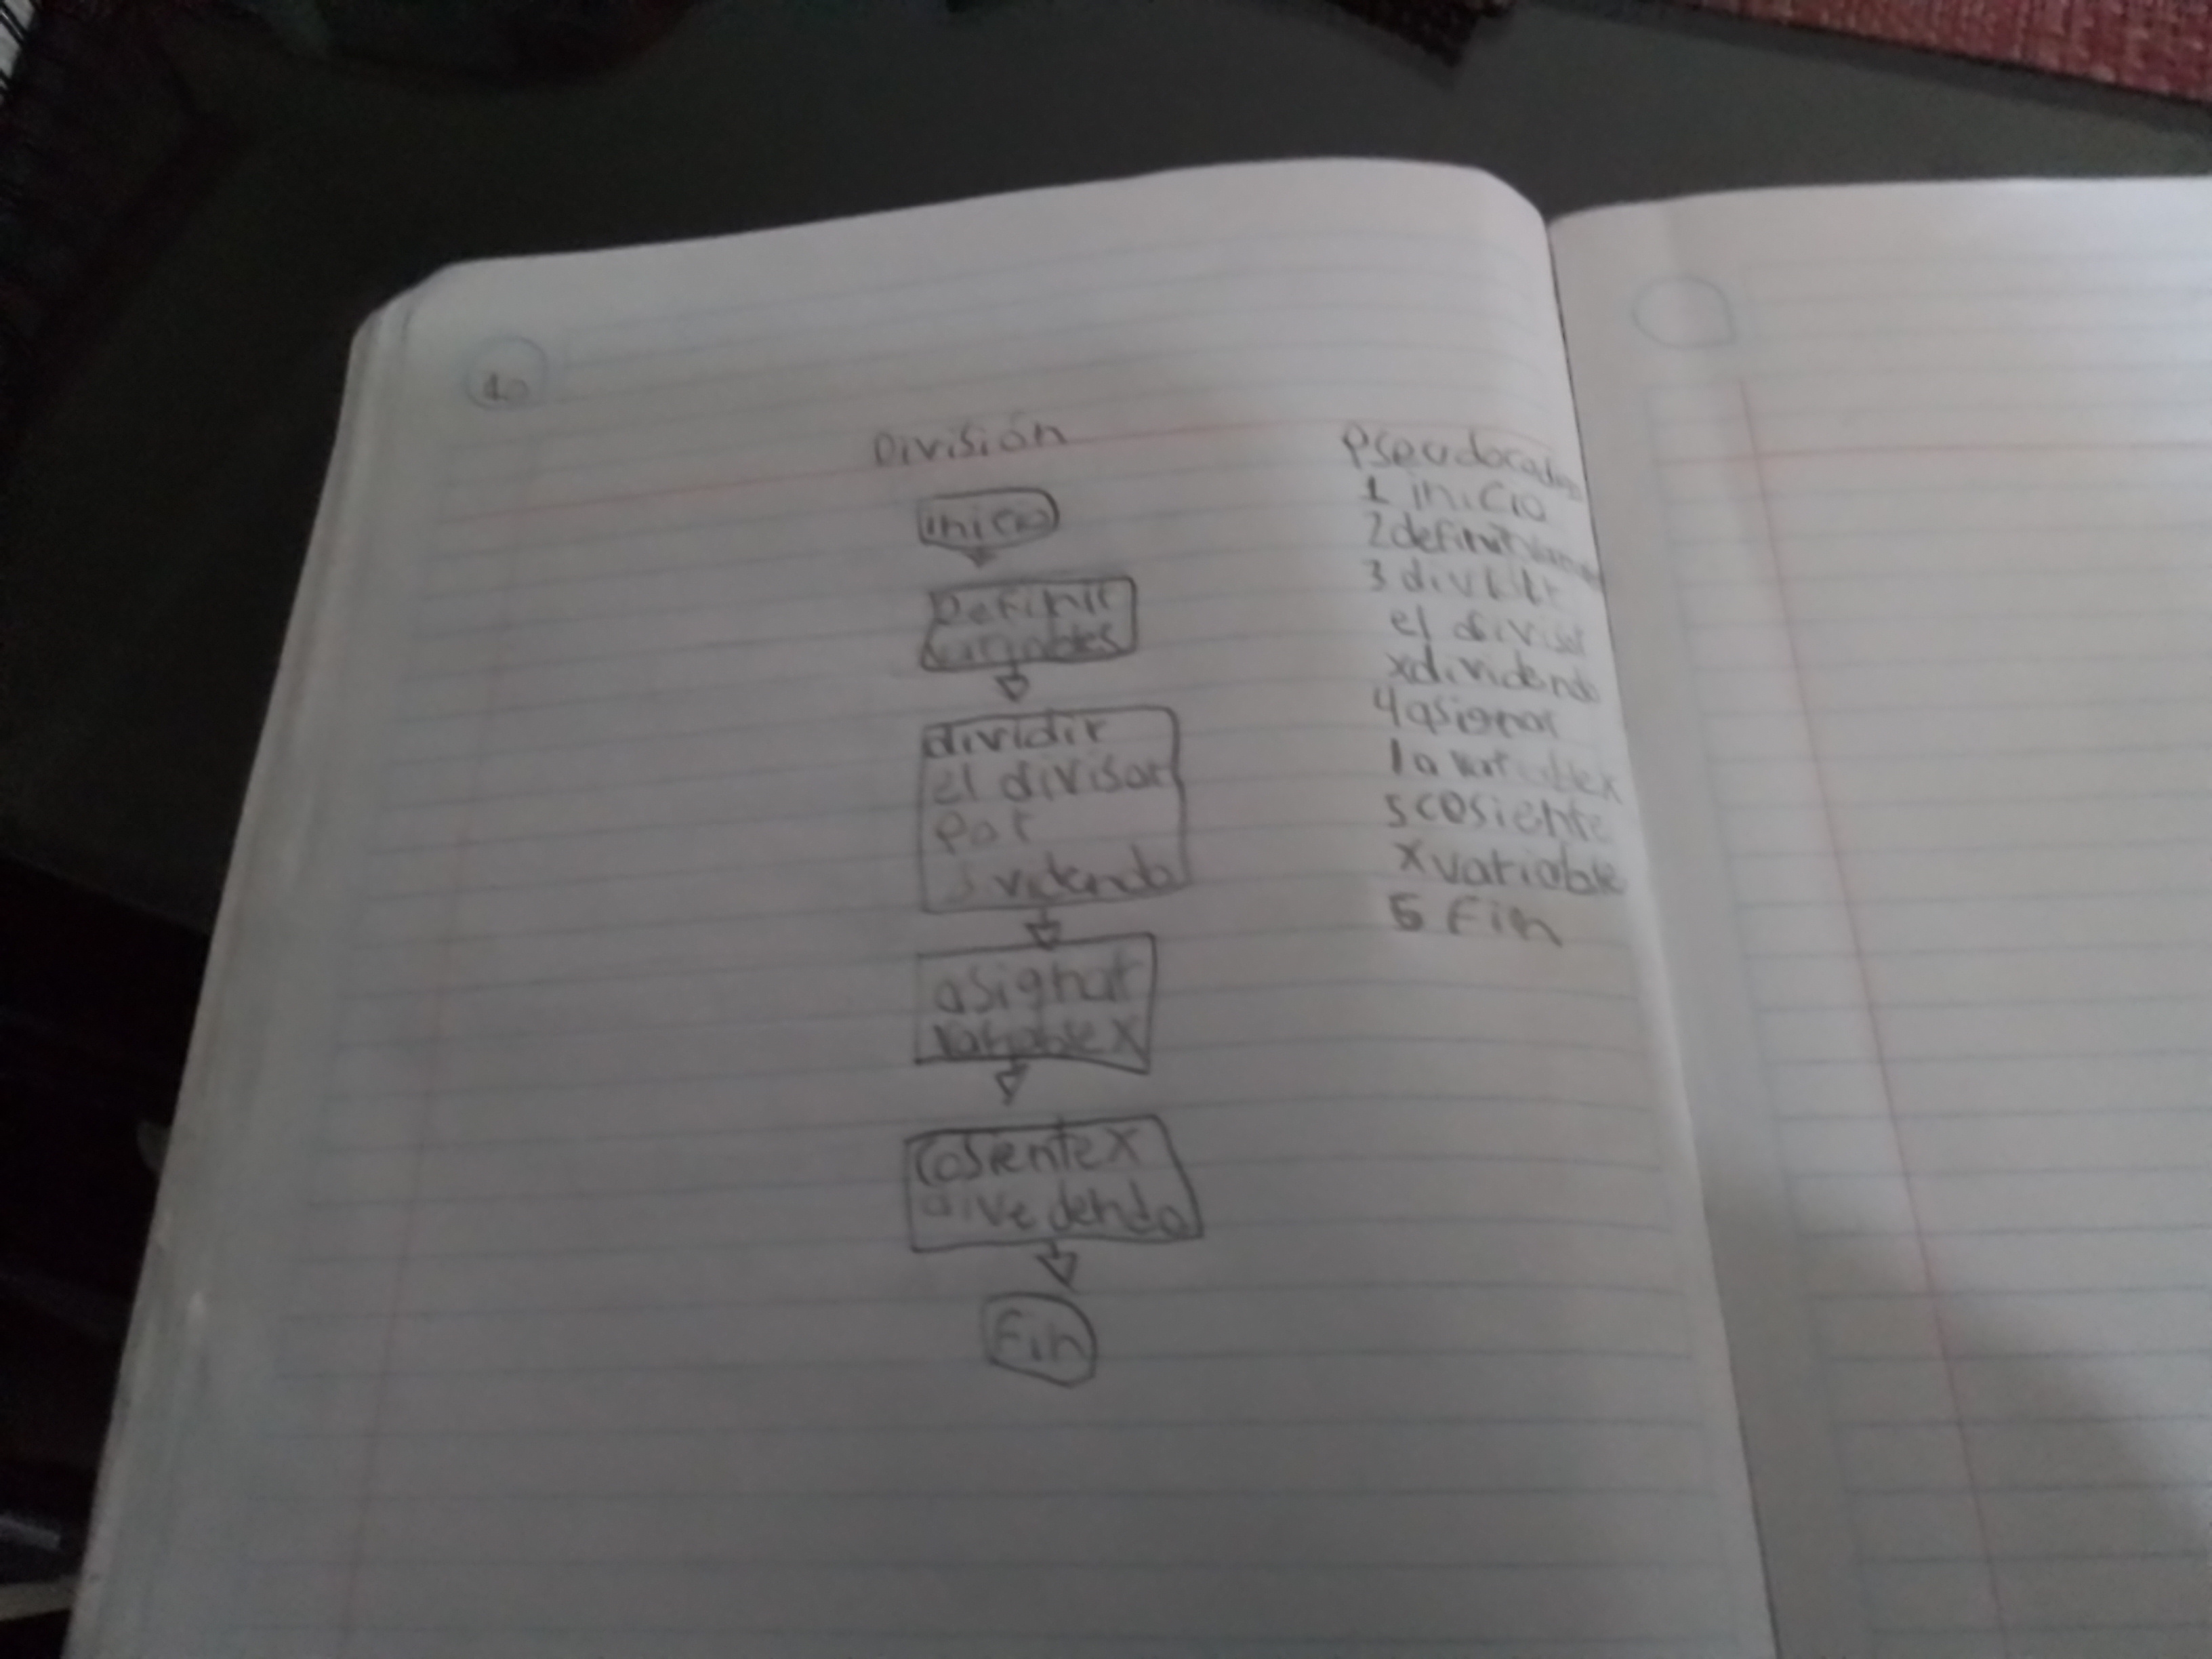 10
División
inicio
Definir
variables
dividir
el divisor
por
dividendo
asignar
variable X
Cosiente X
divedendo
Fin
Pseudocodigo
1 inicio
2 definir
3 dividir
el divisor
x dividendo
4 asignar
la variable x
5 cosiente
x variable
6 Fin